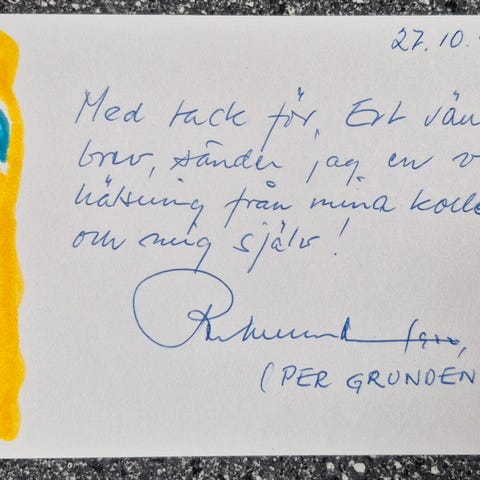 27.10.
Med tack för Ert vän
brev, sänder jag en v
hälsning från mina kolle
och mig själv!
(PER GRUNDEN